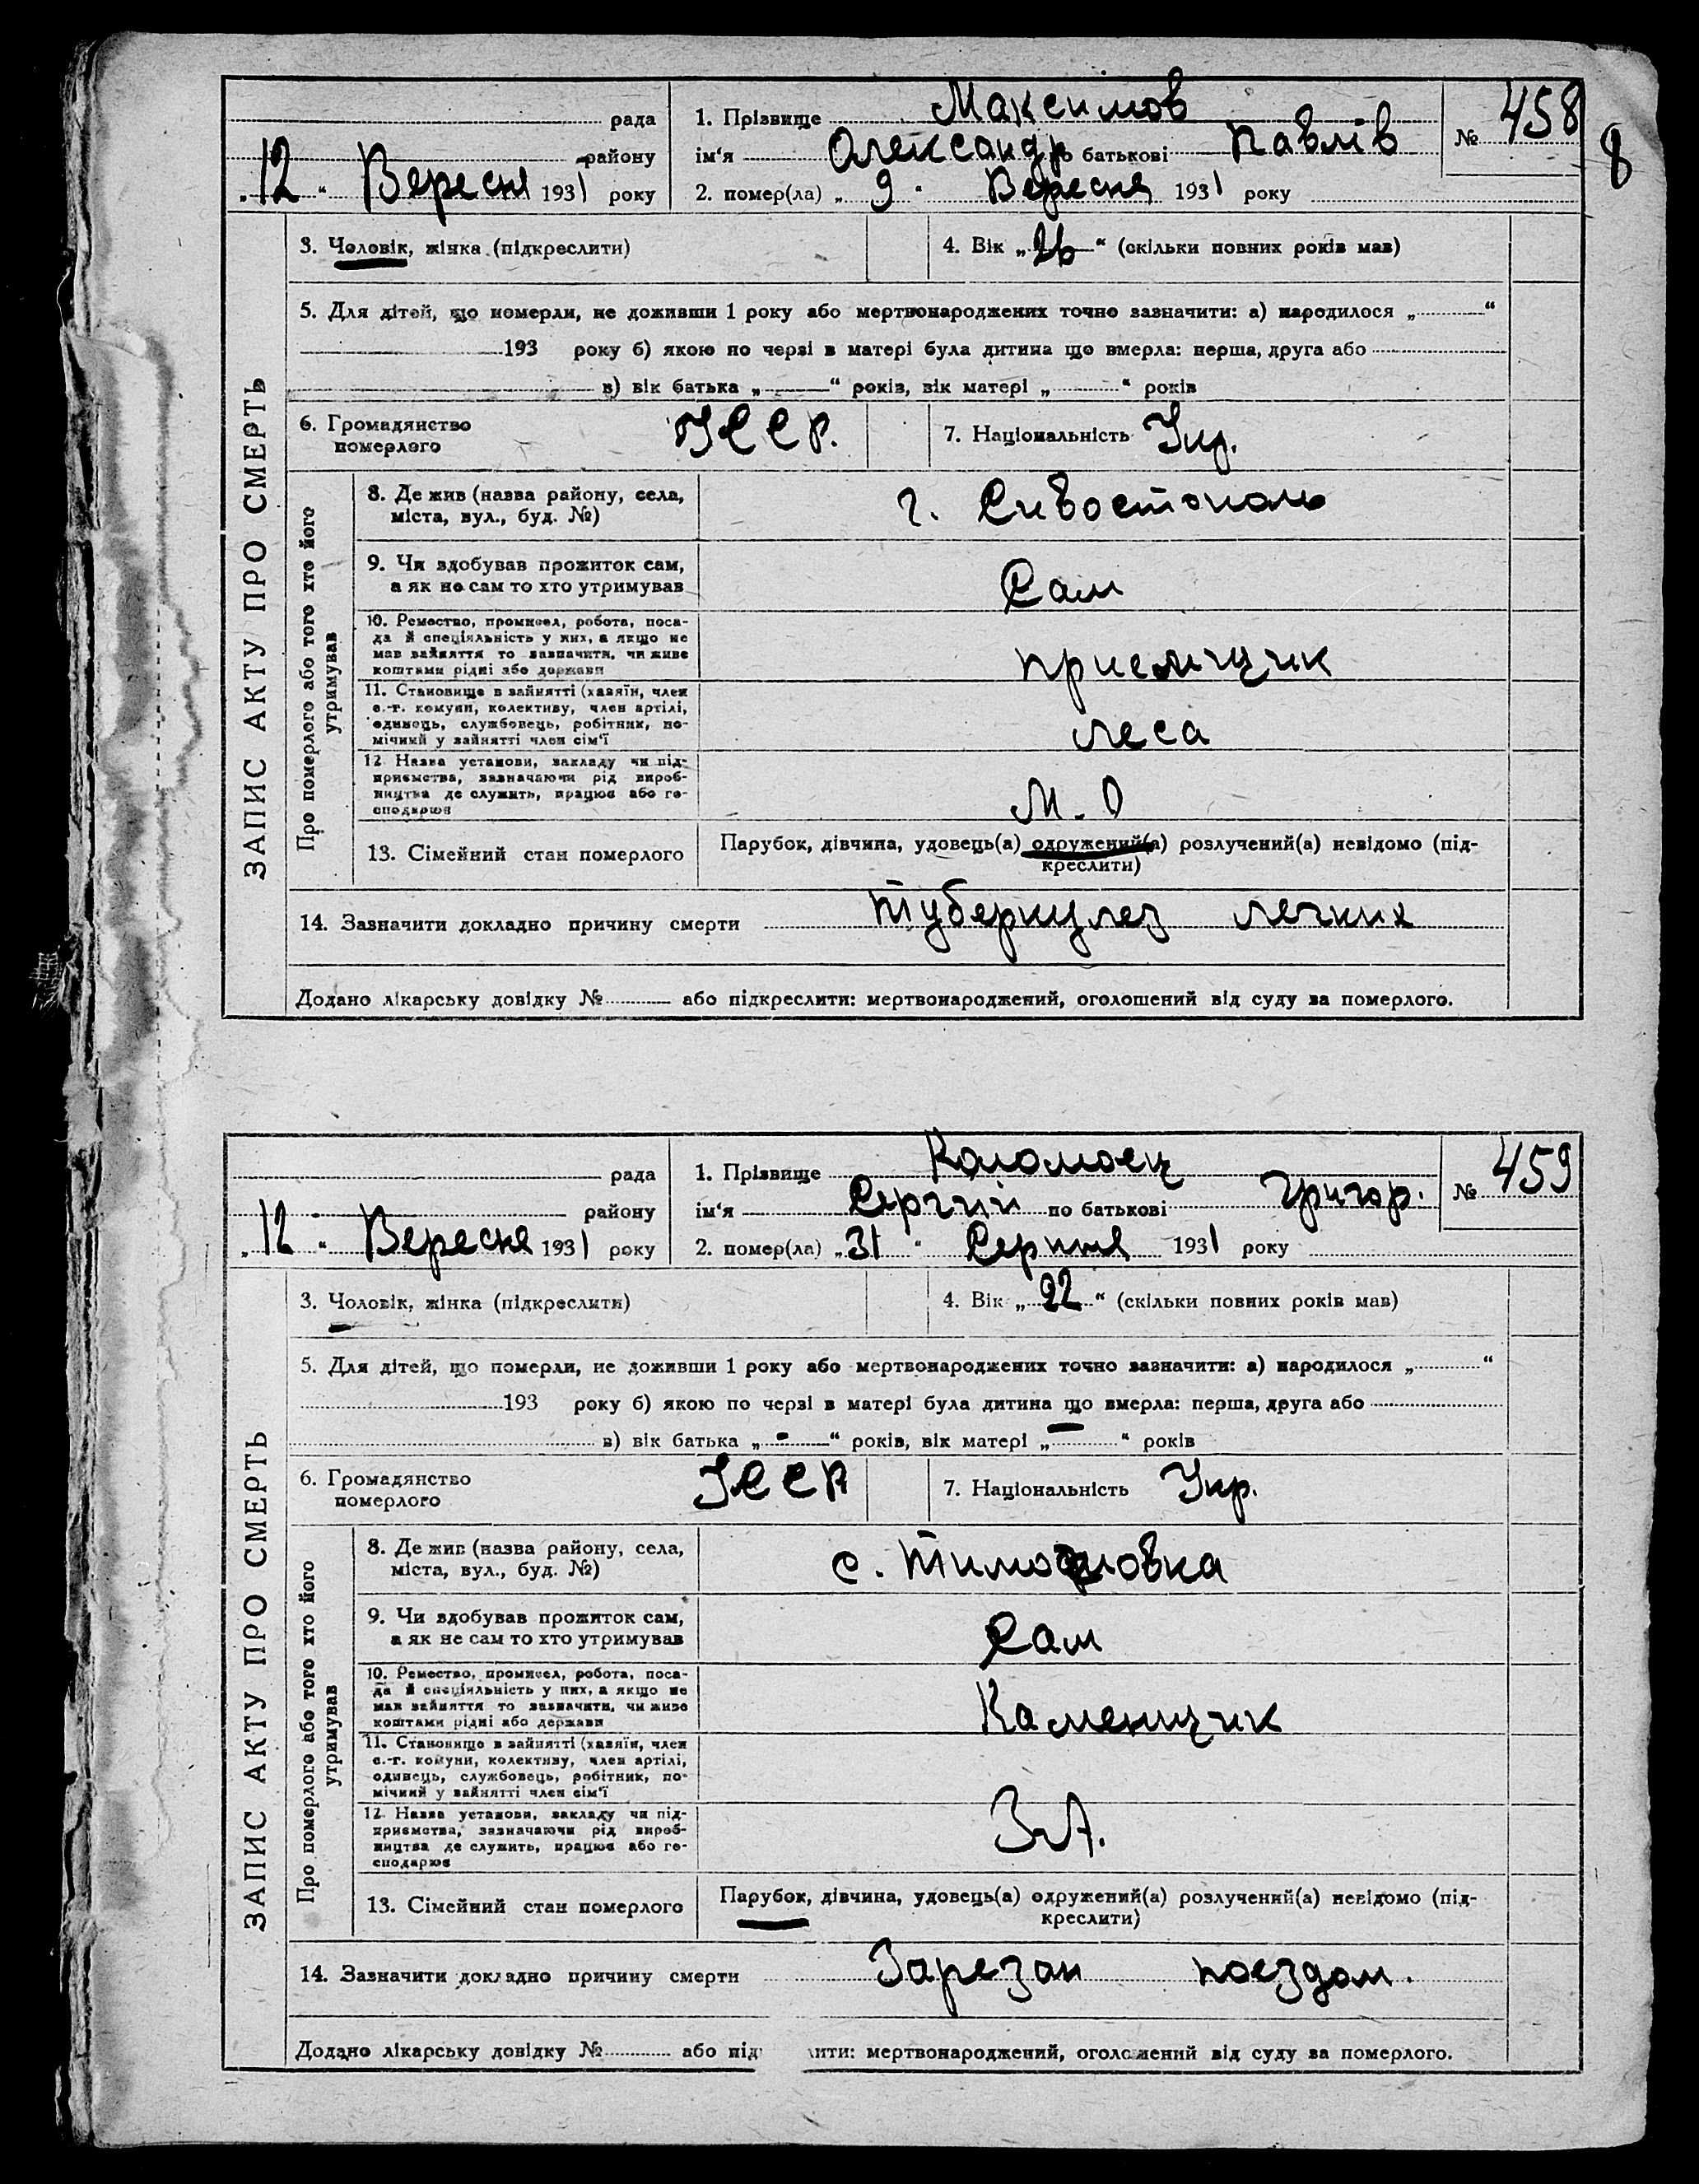 рада 1. Прізвище Максимов № 458
району ім'я Олександр по батькові Павлів 8
„12“ Вересня 1931 року 2. помер(ла) „9“ Вересня 1931 року
ЗАПИС АКТУ ПРО СМЕРТЬ
3. Чоловік, жінка (підкреслити) 4. Вік „26“ (скільки повних років мав)
5. Для дітей, що померли, не доживши 1 року або мертвонароджених точно зазначити: а) народилося „ “
193 року б) якою по черзі в матері була дитина що вмерла: перша, друга або
в) вік батька „ “ років, вік матері „ “ років
6. Громадянство УССР. 7. Національність Укр.
померлого
Про померлого або того хто його
утримував
8. Де жив (назва району, села, г. Сивостополь
міста, вул., буд. №)
9. Чи здобував прожиток сам, Сам
а як не сам то хто утримував
10. Ремество, промисел, робота, поса-
да й спеціяльність у них, а якщо не
мав зайняття то зазначити, чи живе приемщик
коштами рідні або держави
11. Становище в зайнятті (хазяїн, член
с.-г. комуни, колективу, член артілі,
одинець, службовець, робітник, по- леса
мічний у зайнятті член сім'ї
12 Назва установи, закладу чи під-
приємства, зазначаючи рід вироб-
ництва де служить, працює або го- М. О
сподарює
13. Сімейний стан померлого Парубок, дівчина, удовець(а) одружений(а) розлучений(а) невідомо (під-
креслити)
14. Зазначити докладно причину смерти Туберкулез легких
Додано лікарську довідку № або підкреслити: мертвонароджений, оголошений від суду за померлого.
рада 1. Прізвище Коломоец № 459
району ім'я Сергій по батькові Григор.
„12“ Вересня 1931 року 2. помер(ла) „31“ Серпня 1931 року
ЗАПИС АКТУ ПРО СМЕРТЬ
3. Чоловік, жінка (підкреслити) 4. Вік „22“ (скільки повних років мав)
5. Для дітей, що померли, не доживши 1 року або мертвонароджених точно зазначити: а) народилося „ “
193 року б) якою по черзі в матері була дитина що вмерла: перша, друга або
в) вік батька „-“ років, вік матері „-“ років
6. Громадянство УССР 7. Національність Укр.
померлого
Про померлого або того хто його
утримував
8. Де жив (назва району, села, с. Тимофіовка
міста, вул., буд. №)
9. Чи здобував прожиток сам, Сам
а як не сам то хто утримував
10. Ремество, промисел, робота, поса-
да й спеціяльність у них, а якщо не
мав зайняття то зазначити, чи живе Каменщик
коштами рідні або держави
11. Становище в зайнятті (хазяїн, член
с.-г. комуни, колективу, член артілі,
одинець, службовець, робітник, по-
мічний у зайнятті член сім'ї
12 Назва установи, закладу чи під-
приємства, зазначаючи рід вироб-
ництва де служить, працює або го-
сподарює
13. Сімейний стан померлого Парубок, дівчина, удовець(а) одружений(а) розлучений(а) невідомо (під-
креслити)
14. Зазначити докладно причину смерти Зарезан поездом.
Додано лікарську довідку № або під ити: мертвонароджений, оголошений від суду за померлого.